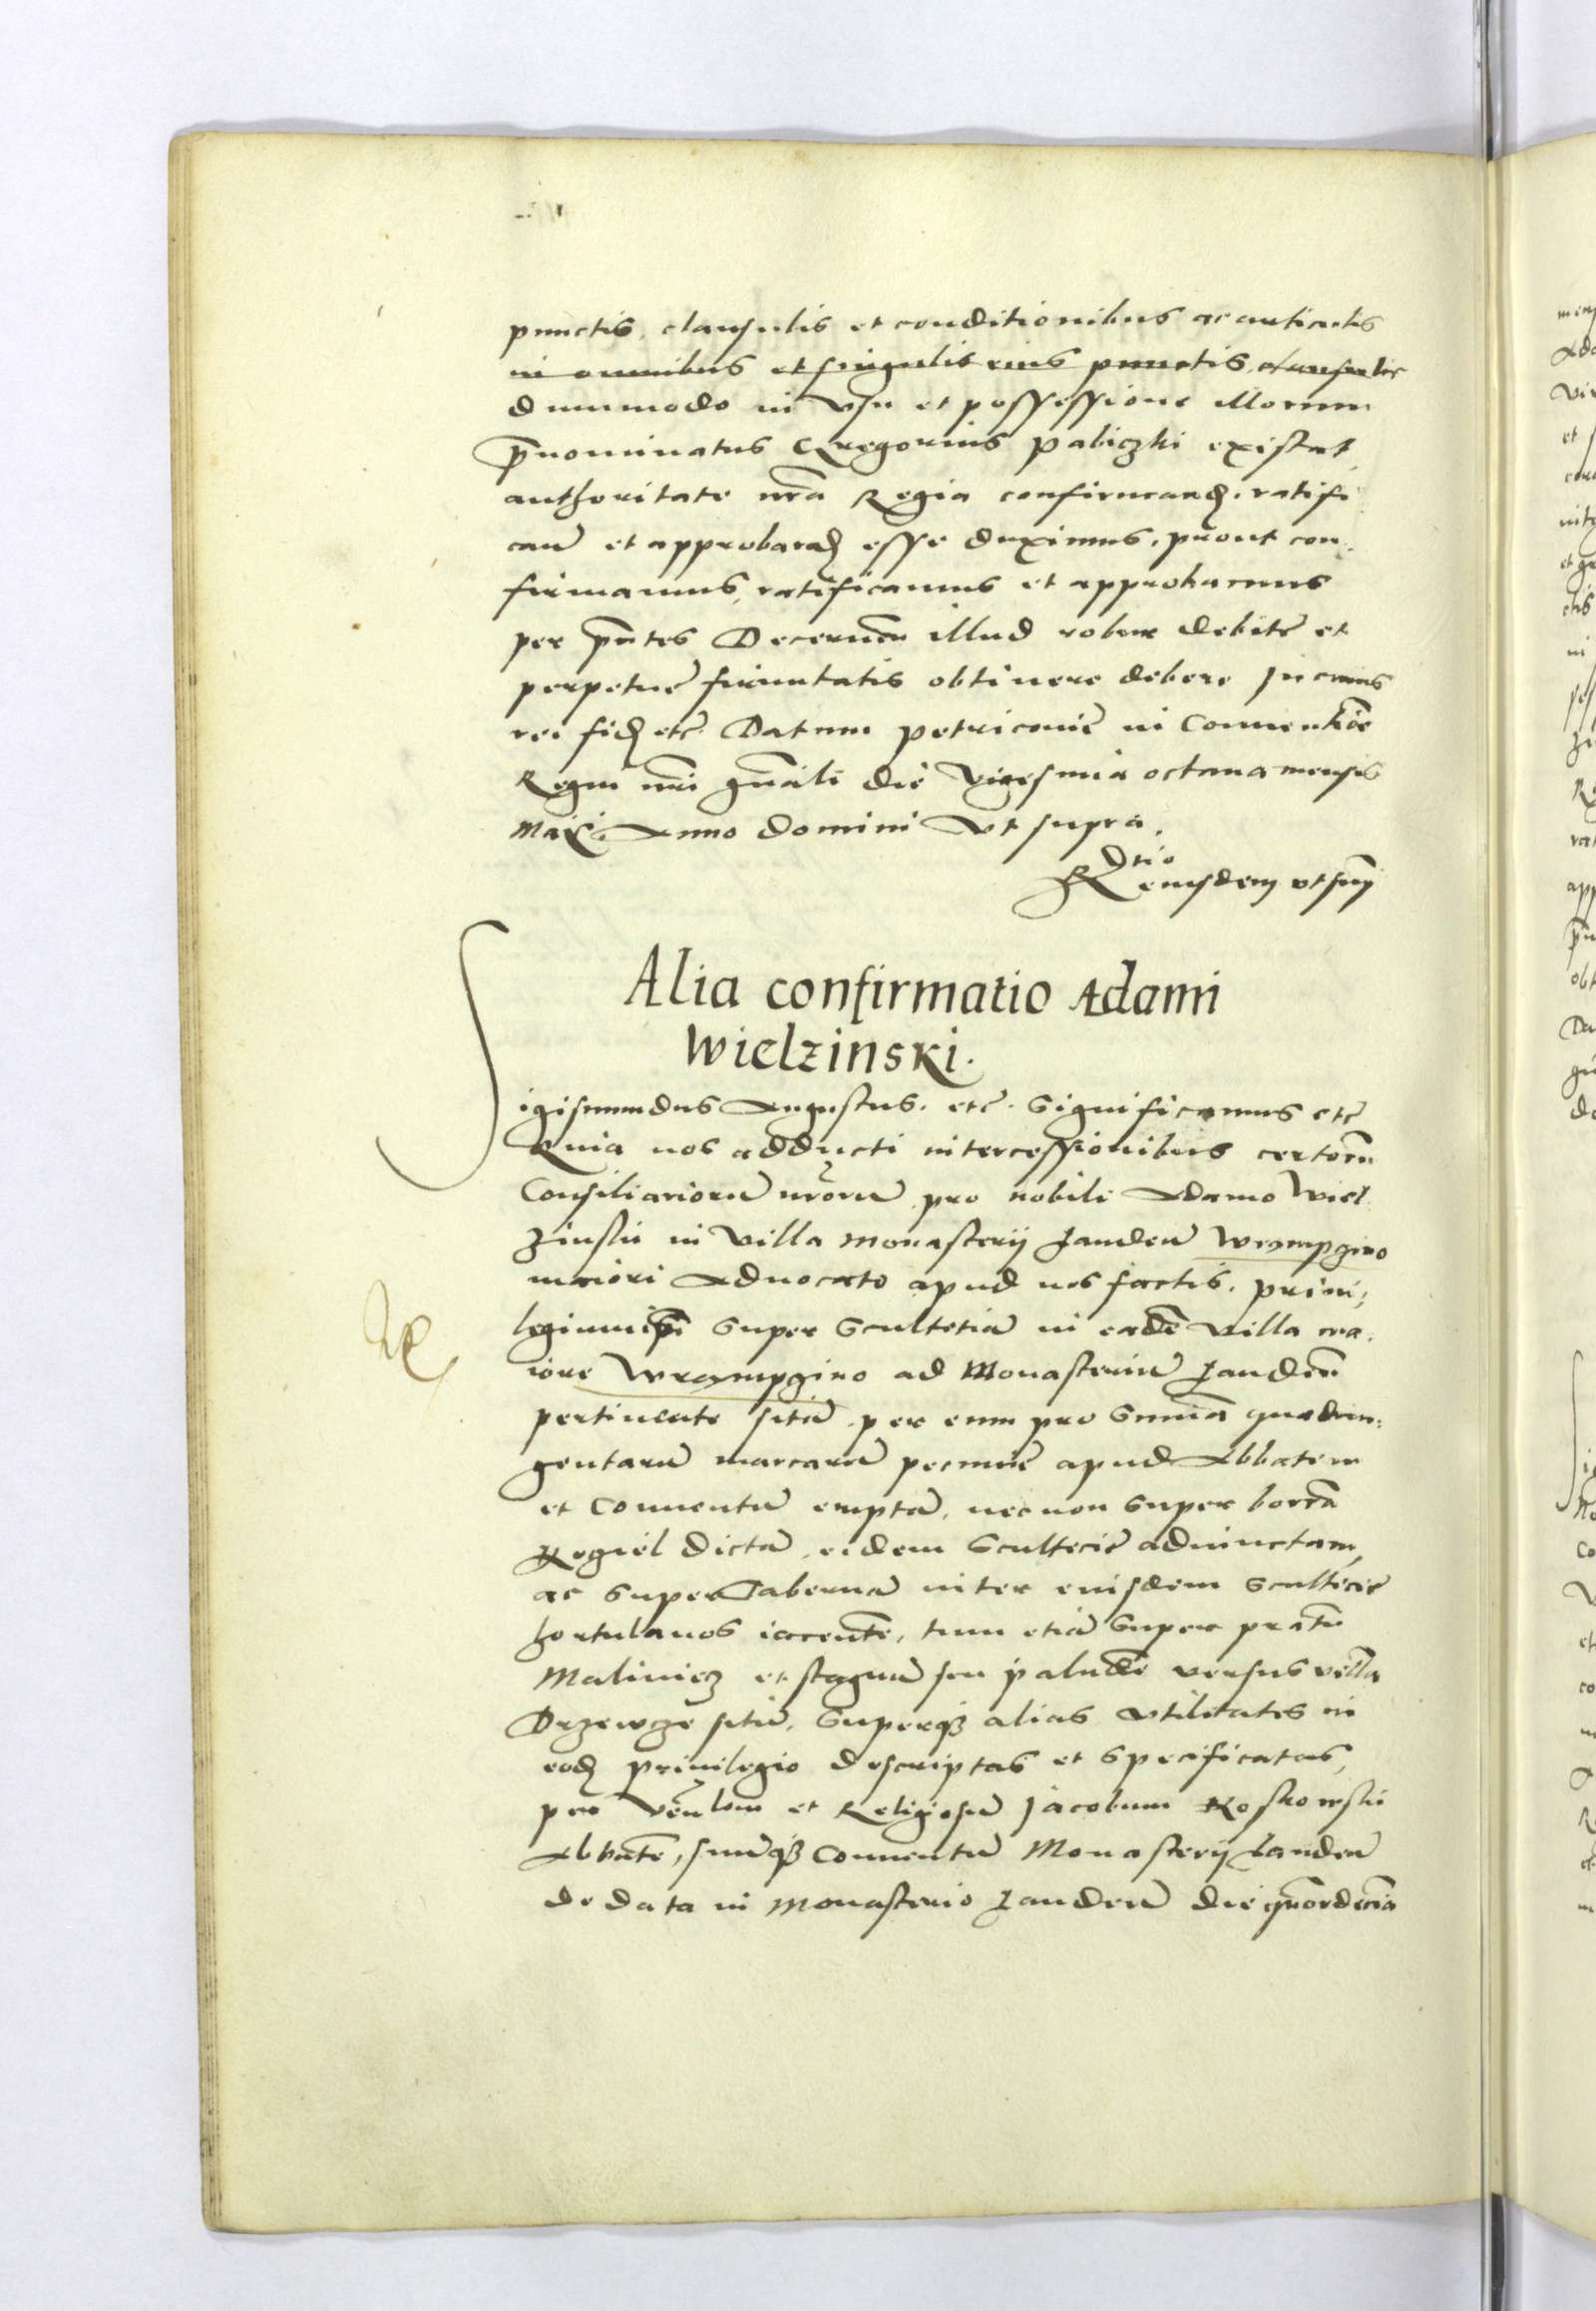 punctis, clausulis et conditionibus ac articulis
in omnibus et singulis eius punctis, clausulis
dummodo in vsu et possessione illorum
p̄nominatus Gregorius Pabiczki existat,
authoritate nr̄a Regia confirmand. ratifi
can̄ et approband esse duximus, prout con,
firmamus, ratificamus et approbamus
per pn̄tes Decernen̄ illud robur debitę et
perpetuę firmitatis obtinere debere In cuius
rei fid etc̄ Datum Petricouię in Conuentiōe
Regni nr̄i gn̄ali die Vigesima octaua mensis
Maij Anno domini Vt supra.
Rtio eiusdem vt sup̄
Alia confirmatio Adami
Wielzinski.
Sigismundus Augustus. etc̄. Significamus etc̄
Quia nos adducti intercessionibus certorū
Consiliariorū nr̄orū pro nobili Adamo Wiel
zinskі in Villa Monasterij Landen̄ Wrampgino
maiori Aduocato apud nos factis, priui,
legium ip̄i Super Scultetiā in eadē Villa ma,
iore Wrampgino ad Monasteriū Landen̄
pertinente sitā per eum pro Sum̄a quadrin,
gentarū marcarū pecunię apud Abbatem
et Conuentū emptā, necnon Super borrā
Kegiel dictā, eidem Scultecię adiunctam,
ac Super Tabernā inter eiusdem Scultecię
hortulanos iacentē, tum etiā Super pratū
Maliniecz et stagnū seu paludē versus villā
Drzewcze sitū, Superq3 alias Vtilitates in
eod priuilegio descriptas et Specificatas,
per Ven̄lem et Religiosū Jacobum Koskowski
Abbatē, suūq3 Conuentū Monasterij Landen̄
de data in Monasterio Landen̄ die quordecīa